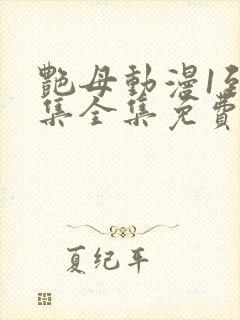 艷母動漫1至
集全集免費
夏纪年